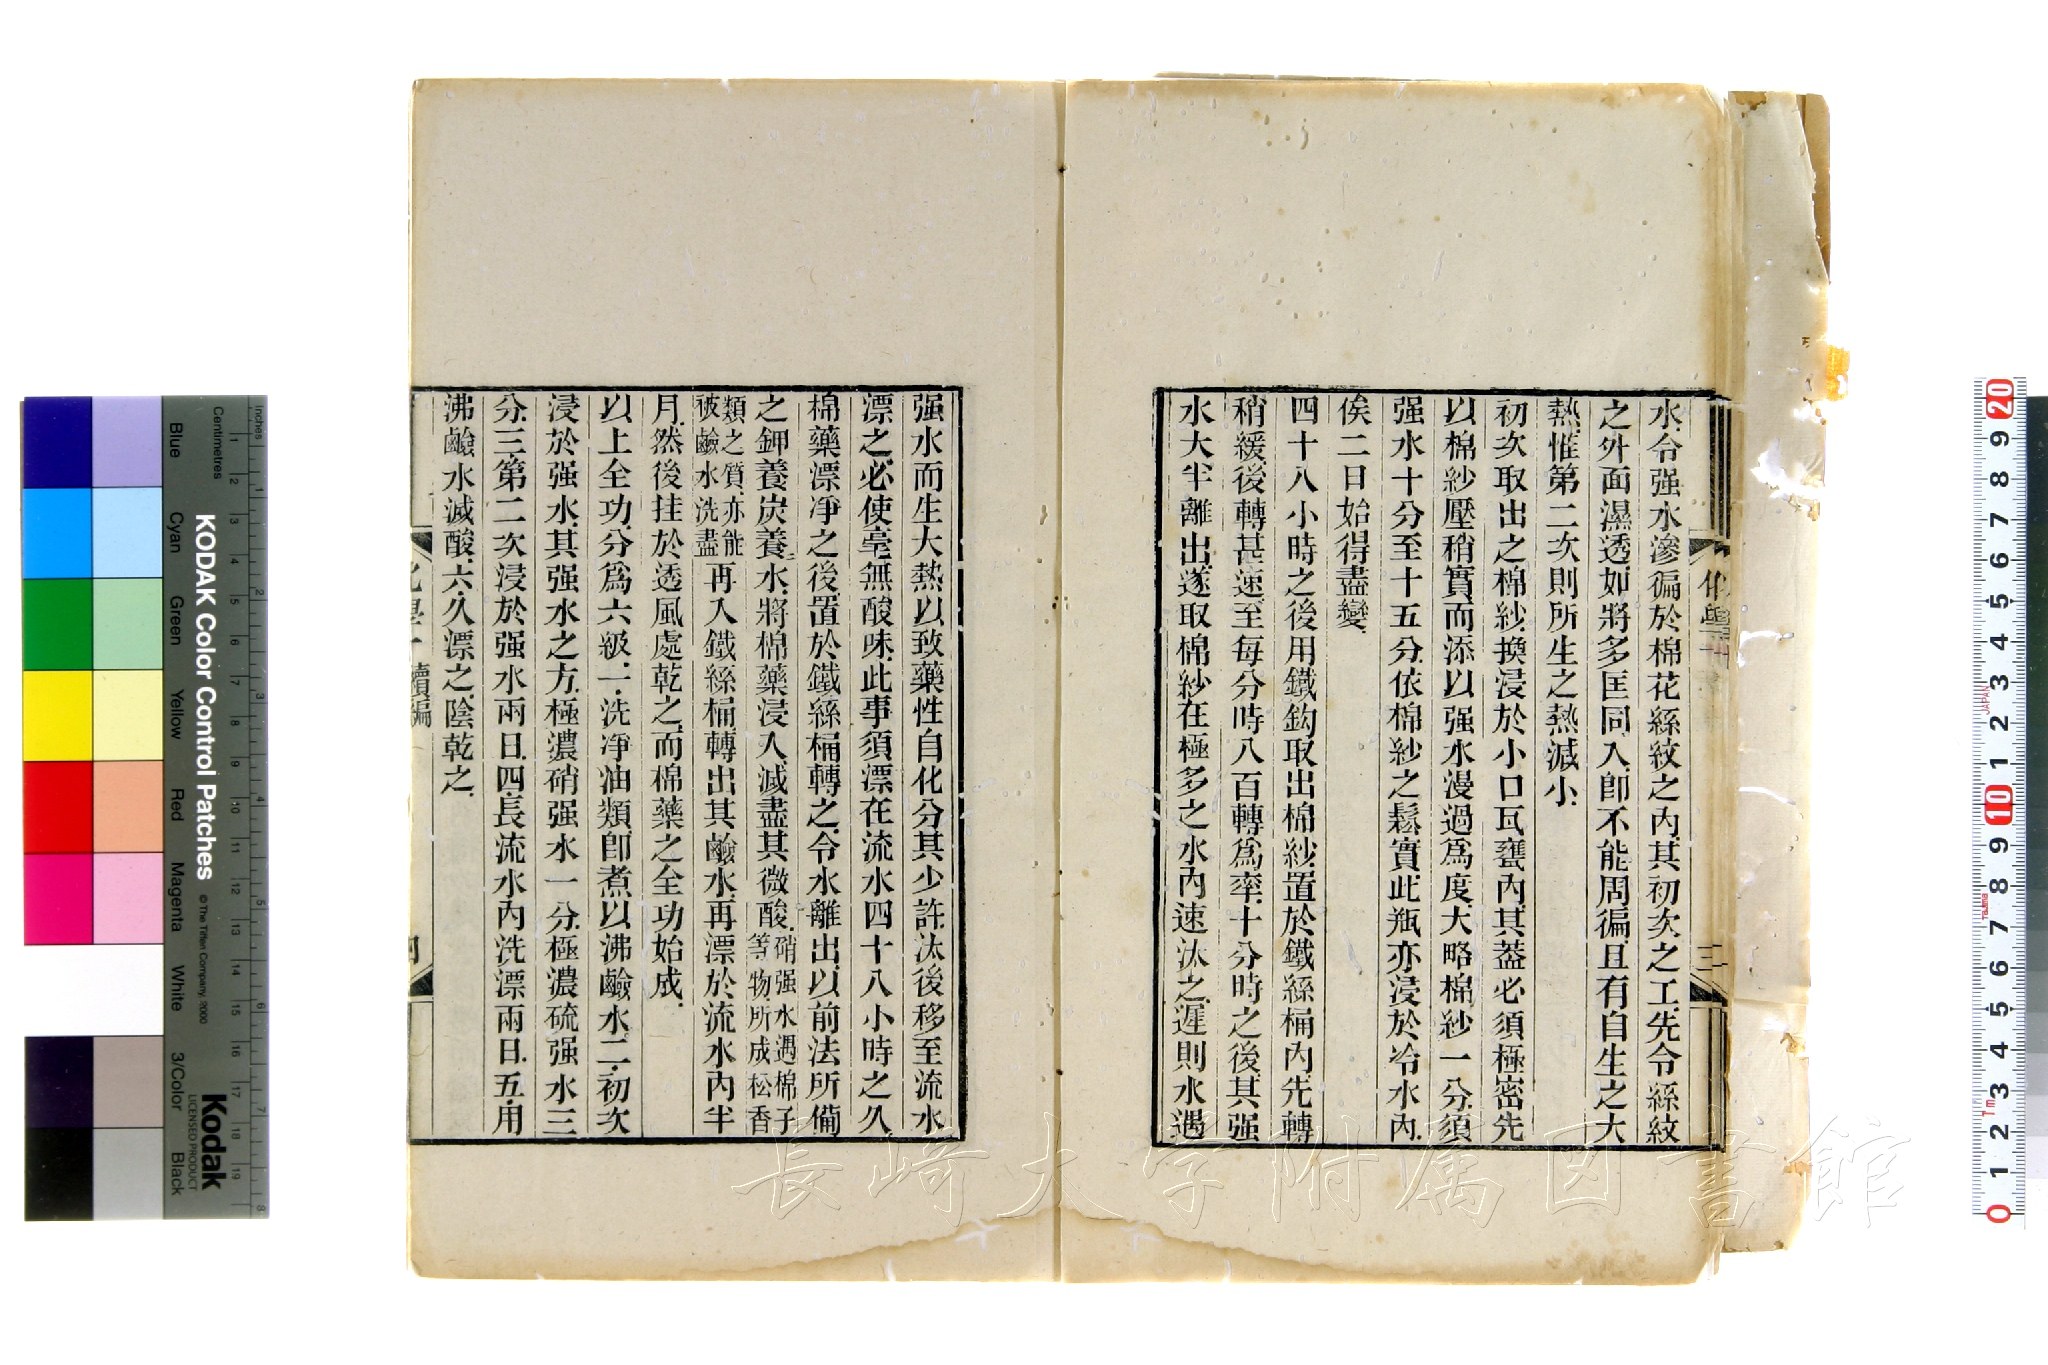 水、令强水滲徧於棉花絲紋之內、其初次之工、先令絲紋
之外面濕透、如將多匡同入、卽不能周徧、且有自生之大
熱、惟第二次則所生之熱減小、
初次取出之棉紗、換浸於小口瓦甕內、其葢必須極密、先
以棉紗壓稍實、而添以强水漫過爲度、大略棉紗一分、須
强水十分至十五分、依棉紗之鬆實、此瓶亦浸於冷水內、
俟二日始得盡變、
四十八小時之後、用鐵鈎取出棉紗、置於鐵絲桶內、先轉
稍緩、後轉甚速、至每分時八百轉爲率、十分時之後、其强
水大半離出、遂取棉紗在極多之水內速汰之、遲則水遇
化學
三
强水而生大熱、以致藥性自化分其少許、汰後移至流水
漂之、必使毫無酸味、此事須漂在流水四十八小時之久、
棉藥漂凈之後、置於鐵絲桶轉之、令水離出、以前法所備
之鉀養炭養水、將棉藥浸入、滅盡其微酸、硝强水遇棉子
等物、所成松香
類之質、亦能
被鹼水洗盡再入鐵絲桶、轉出其鹼水、再漂於流水內半
月、然後挂於透風處乾之、而棉藥之全功始成、
以上全功、分爲六級、一、洗凈油類、卽煮以沸鹼水、二、初次
浸於强水、其强水之方、極濃硝强水一分、極濃硫强水三
分、三、第二次浸於强水兩日、四、長流水內洗漂兩日、五、用
沸鹼水滅酸、六、久漂之、陰乾之、
續編
KODAK Color Control Patches
© The Tiffen Company, 2000
Kodak
LICENSED PRODUCT
Inches
Centimetres
Blue
Cyan
Green
Yellow
Red
Magenta
White
3/Color
Black
長崎大学附属図書館